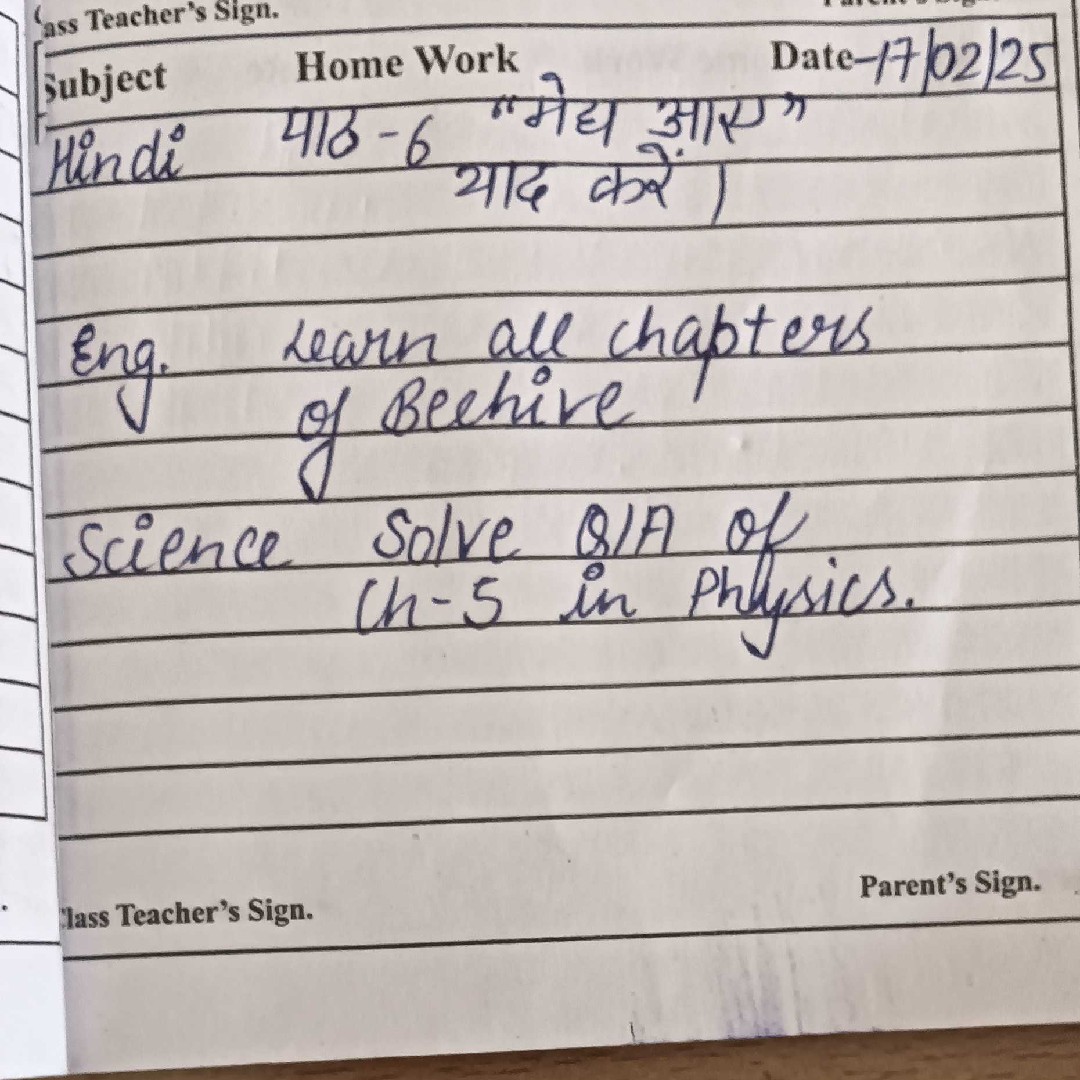 ass Teacher's Sign.
Subject Home Work Date-17/02/25
Hindi पाठ-6 "मेघ आए"
याद करें।
Eng. Learn all chapters
of Beehive
Science Solve Q/A of
Ch-5 in Physics.
Parent's Sign.
lass Teacher's Sign.